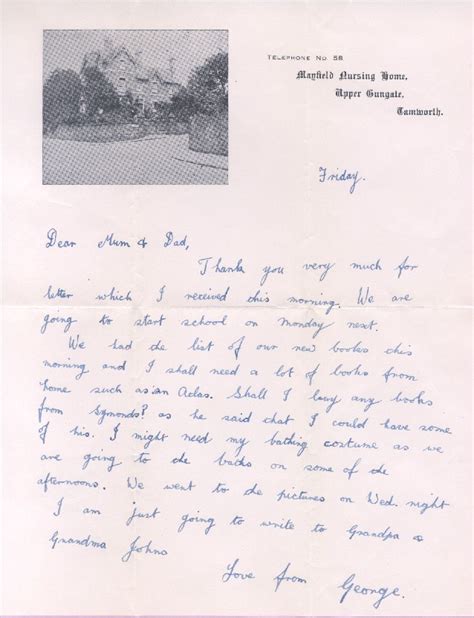 TELEPHONE NO 58
Mayfield Nursing Home,
Upper Gungate,
Tamworth.
Friday.
Dear Mum & Dad,
Thank you very much for
letter which I received this morning. We are
going to start school on Monday next.
We had the list of our new books this
morning and I shall need a lot of books from
home such as an Atlas. Shall I buy any books
from Symonds? as he said that I could have some
of his. I might need my bathing costume as we
are going to the baths on some of the
afternoons. We went to the pictures on Wed. night
I am just going to write to Grandpa &
Grandma Johns
Love from George.